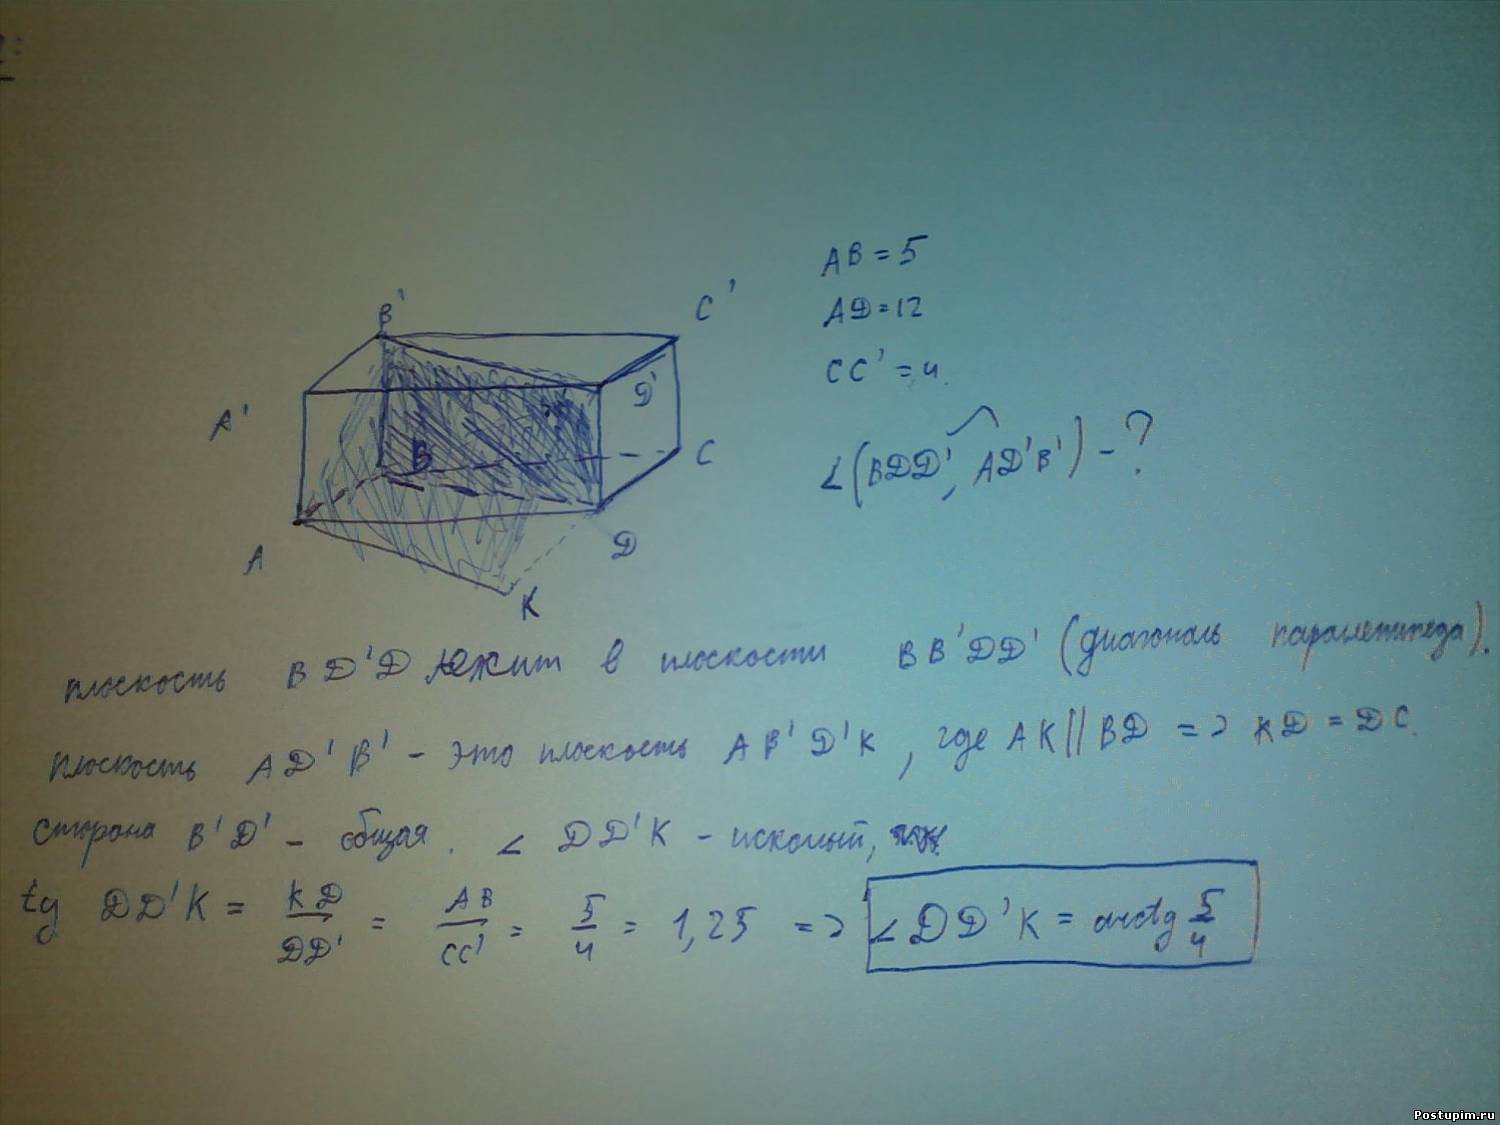 B'
C'
A'
D'
B
C
A
D
K
AB = 5
AD = 12
CC' = 4
∠(BDD', AD'B') - ?
плоскость BD'D лежит в плоскости BB'DD' (диагональ параллепипеда).
плоскость AD'B' - это плоскость AB'D'K, где AK || BD => KD = DC.
сторона B'D' - общая. ∠ DD'K - искомый,
tg DD'K = KD/DD' = AB/CC' = 5/4 = 1,25 => ∠DD'K = arctg 5/4
Postupim.ru